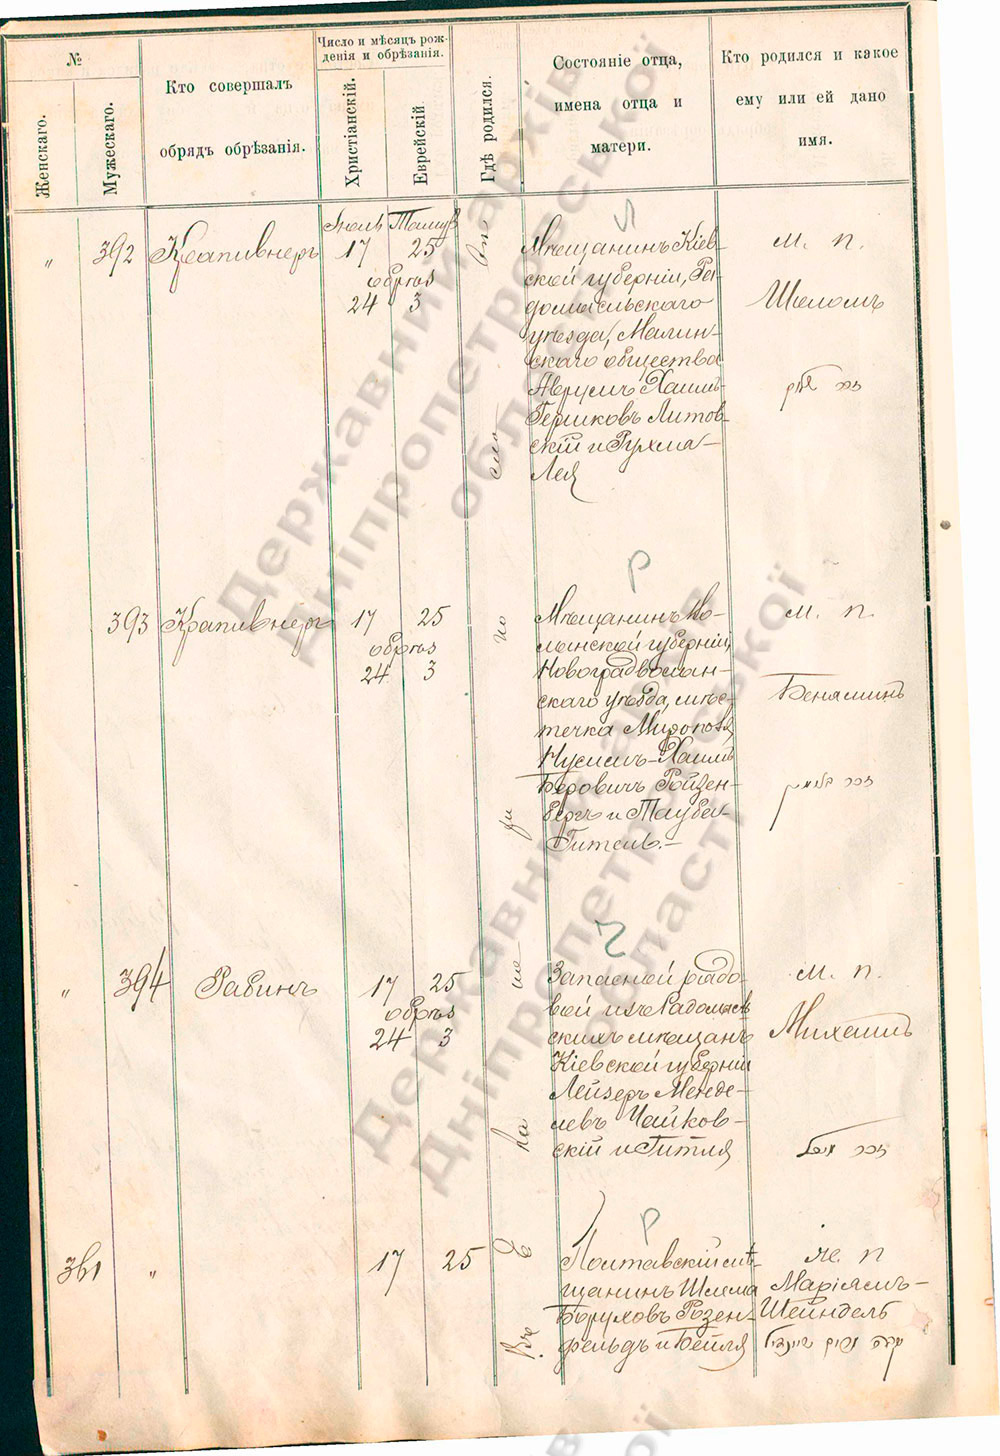 №
Женскаго.
Мужескаго.
Кто совершалъ
обрядъ обрѣзанія.
Число и мѣсяцъ рож-
денія и обрѣзанія.
Христіанскій.
Еврейскій
Гдѣ родился.
Состояніе отца,
имена отца и
матери.
Кто родился и какое
ему или ей дано
имя.
"
392
Крапивнеръ
Іюль
17
обрѣз
24
Тамузъ
25
3
Мѣщанинъ Кіев-
ской губерніи, Ра-
домысльскаго
уѣзда, Малин-
скаго общества
Аврумъ Хаимъ-
Гершковъ Литов-
скій и Рухма-
Лея
м. п.
Шоломъ
זכר שלום
Р
393
Крапивнеръ
17
обрѣз
24
25
3
Мѣщанинъ Во-
лынской губерніи,
Новоградволын-
скаго уѣзда, мѣс-
течка Мирополя
Нусимъ-Хаимъ
Беровичъ Ройзен-
бергъ и Таубе-
Гитель.-
м. п.
Беняминъ
זכר בנימין
Ч
"
394
Рабинъ
17
обрѣз
24
25
3
Запасной рядо-
вой изъ Радомысл
скихъ мѣщанъ
Кіевской губерніи
Лейзеръ Менде-
левъ Чайков-
скій и Гитля
м. п.
Михаилъ
זכר
Р
361
"
17
25
Полтавскій мѣ-
щанинъ Шлема
Боруховъ Розен-
фельдъ и Бейля
ж. п
Маріямъ-
Шейндель
מרים שיינדיל
Въ
Е
ка
те
ри
но
сла
Державний архів
Дніпропетровської
області
Державний архів
Дніпропетровської
області